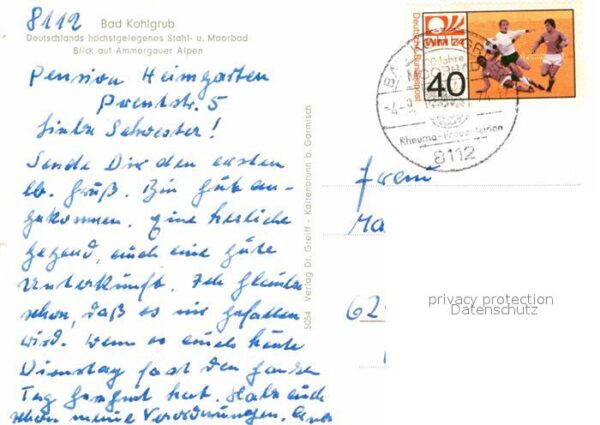 8112 Bad Kohlgrub
Deutschlands höchstgelegenes Stahl- u. Moorbad
Blick auf Ammergauer Alpen
Pension Heimgarten
5
Liebe Schwester!
Sende Dir den ersten
lb. Gruß. Bin gut an-
gekommen. Eine herrliche
Gegend, auch eine gute
Unterkunft. Ich glaube
schon, daß es mir gefallen
wird. Wenn es auch heute
Dienstag fast den ganzen
Tag geregnet hat. Habe auch
schon meine Verordnungen.
5034 Verlag Dr. Greiff - Kaltenbrunn b. Garmisch
Deutsche Bundespost
WM 74
40
8112
Frau
62
privacy protection
Datenschutz